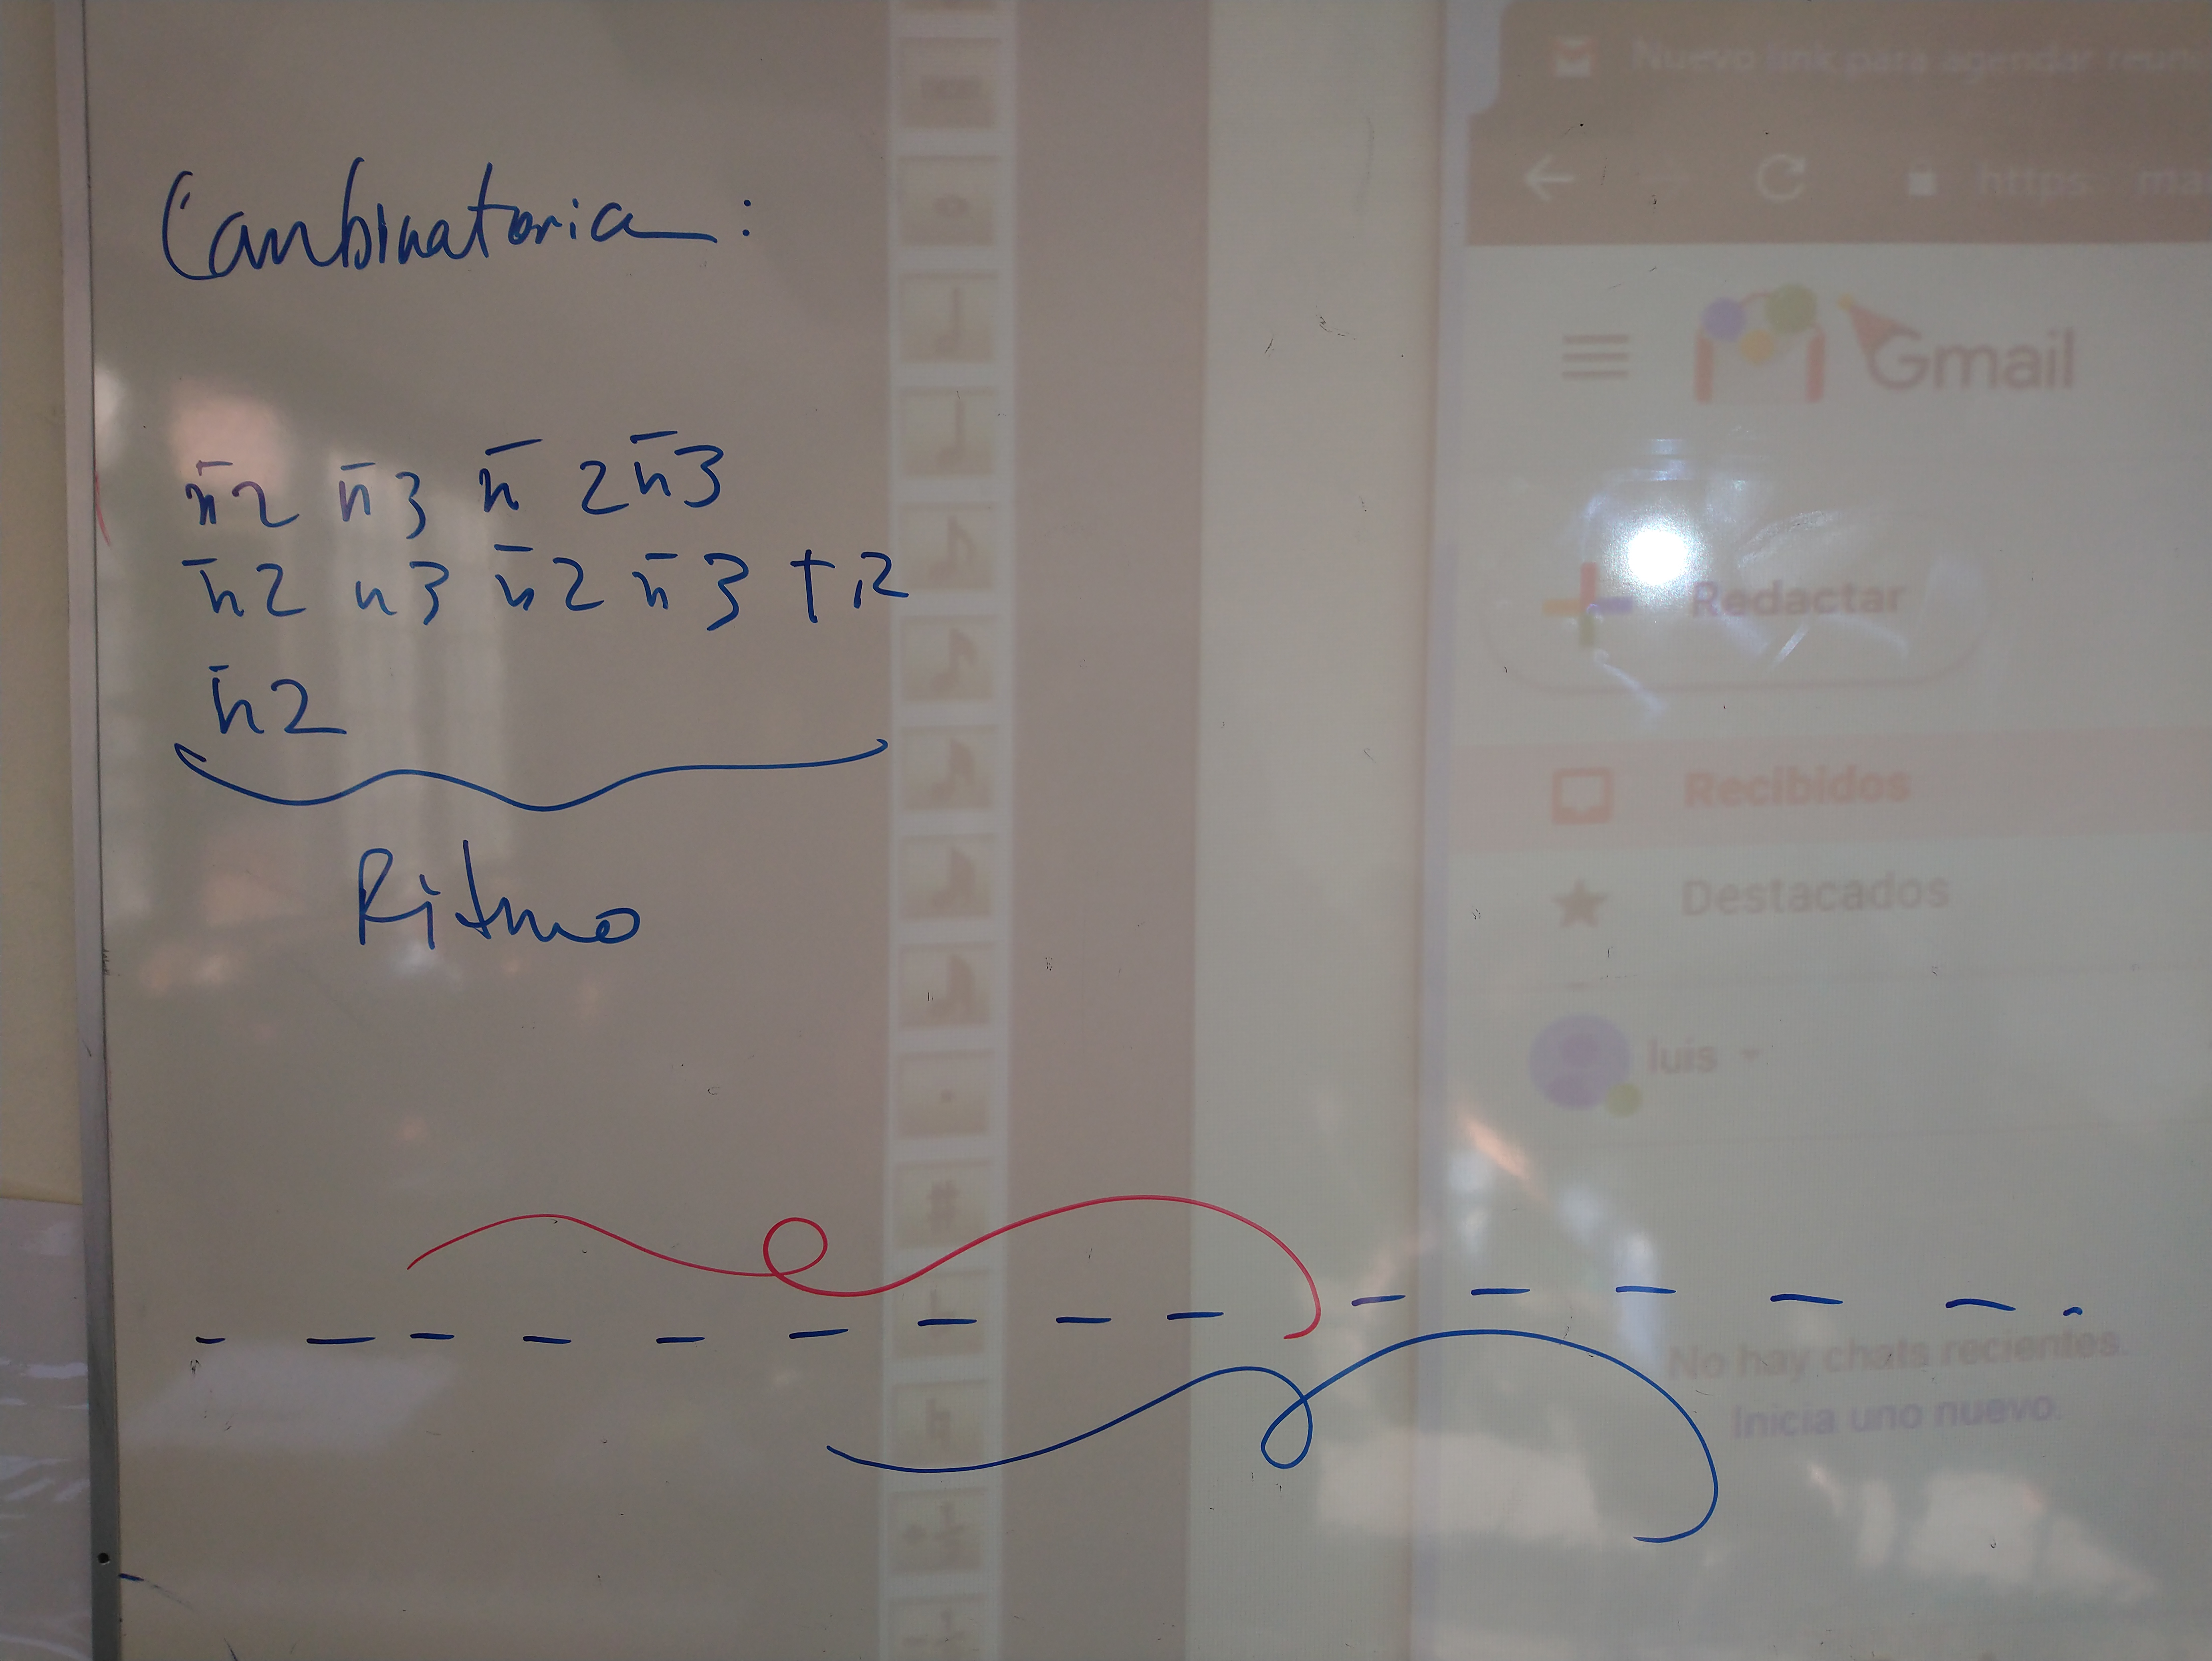 Combinatoria:
n̄2 n̄3 n̄ 2n̄3
n̄2 n3 n̄2 n̄3 + 2
n̄2
Ritmo
Nuevo link para agendar reun
https: ma
Gmail
Redactar
Recibidos
Destacados
luis
No hay chats recientes.
Inicia uno nuevo.